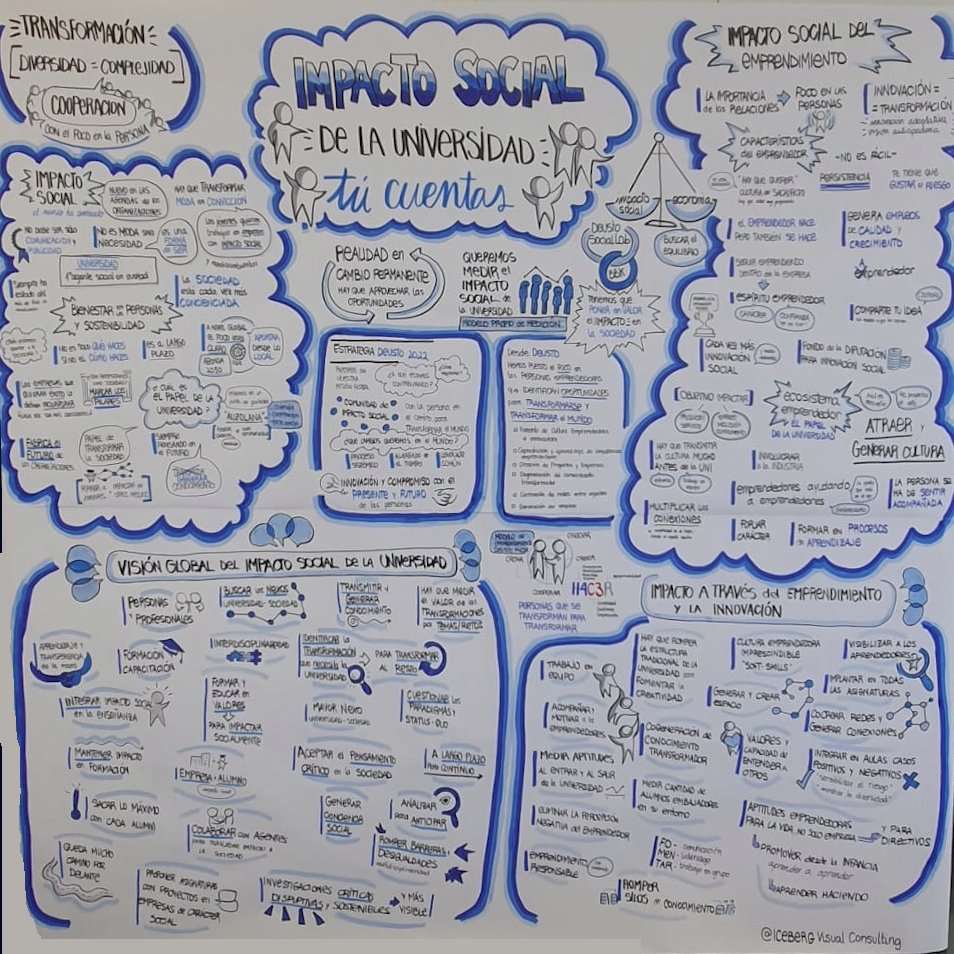 TRANSFORMACIÓN
[DIVERSIDAD = COMPLEJIDAD]
COOPERACIÓN
CON el FOCO en la PERSONA
IMPACTO SOCIAL
DE LA UNIVERSIDAD
tú cuentas
IMPACTO SOCIAL DEL
EMPRENDIMIENTO
LA IMPORTANCIA
de las RELACIONES
FOCO EN LAS
PERSONAS
INNOVACIÓN =
= TRANSFORMACIÓN
CARACTERÍSTICAS
del EMPRENDEDOR
-NO ES FÁCIL-
PERSISTENCIA
TE TIENE QUE
GUSTAR el RIESGO
el EMPRENDEDOR NACE
PERO TAMBIÉN SE HACE
GENERA EMPLEOS
de CALIDAD Y
CRECIMIENTO
SEGUIR EMPRENDIENDO
DENTRO de la EMPRESA
emprendedor
ESPÍRITU EMPRENDEDOR
COMPARTE TU IDEA
CADA VEZ MÁS
INNOVACIÓN
SOCIAL
FONDO de la DIPUTACIÓN
PARA INNOVACIÓN SOCIAL
¿OBJETIVO IMPACTAR?
ecosistema
emprendedor
el PAPEL DE
LA UNIVERSIDAD
ATRAER y
GENERAR CULTURA
HAY QUE TRANSMITIR
LA CULTURA MUCHO
ANTES de la UNI
INVOLUCRAR
a la INDUSTRIA
emprendedores ayudando
a emprendedores
LA PERSONA SE
HA DE SENTIR
ACOMPAÑADA
MULTIPLICAR LAS
CONEXIONES
FORJAR
CARÁCTER
FORMAR en PROCESOS
de APRENDIZAJE
IMPACTO
SOCIAL
NUEVO en LAS
AGENDAS de las
ORGANIZACIONES
HAY QUE TRANSFORMAR
MODA en CONVICCIÓN
NO DEBE SER SÓLO
COMUNICACIÓN y
PUBLICIDAD
NO ES MODA SINO
NECESIDAD
es UNA
FORMA
de SER
Los jóvenes quieren
trabajar en empresas
con IMPACTO SOCIAL
UNIVERSIDAD
LA SOCIEDAD
está cada vez más
CONCIENCIADA
BIENESTAR en las PERSONAS
y SOSTENIBILIDAD
NO es QUÉ HACES
SI NO el CÓMO HACES
es A LARGO
PLAZO
A NIVEL GLOBAL
el FOCO está
CLARO
AGENDA
2030
APORTAR
DESDE LO
LOCAL
¿CUÁL ES
el PAPEL DE LA
UNIVERSIDAD?
AUZOLANA
FÁBRICA el
FUTURO de
las ORGANIZACIONES
PAPEL DE
TRANSFORMAR
LA SOCIEDAD
SIEMPRE
PENSANDO en el
FUTURO
REALIDAD en
CAMBIO PERMANENTE
HAY QUE APROVECHAR LAS
OPORTUNIDADES
QUEREMOS
MEDIR el
IMPACTO
SOCIAL de
la UNIVERSIDAD
MODELO PROPIO de MEDICIÓN
impacto
social
economía
DEUSTO
SOCIAL LAB
BBK
BUSCAR el
EQUILIBRIO
Tenemos que
PONER en VALOR
el IMPACTO en
la SOCIEDAD
ESTRATEGIA DEUSTO 2022
COMUNIDAD de
IMPACTO SOCIAL
con la persona en
el centro para
TRANSFORMAR el MUNDO
¿QUÉ CAMBIOS QUEREMOS en el MUNDO?
PROCESO
SISTÉMICO
ALARGADO en
el TIEMPO
LENGUAJE
COMÚN
INNOVACIÓN y COMPROMISO con el
PRESENTE y FUTURO
de las personas
Desde DEUSTO
HEMOS PUESTO el FOCO en
las PERSONAS EMPRENDEDORAS
que IDENTIFICAN OPORTUNIDADES
para TRANSFORMARSE y
TRANSFORMAR el MUNDO
Fomento de Cultura Emprendedora
e innovadora
Creación de Proyectos y Empresas
MODELO de
EMPRENDIMIENTO
CREER
CREAR
COOPERAR
H4C3R
PERSONAS QUE SE
TRANSFORMAN PARA
TRANSFORMAR
VISIÓN GLOBAL DEL IMPACTO SOCIAL DE LA UNIVERSIDAD
PERSONAS
y PROFESIONALES
BUSCAR LOS NEXOS
UNIVERSIDAD - SOCIEDAD
TRANSMITIR y
GENERAR
CONOCIMIENTO
HAY QUE MEDIR
el VALOR de las
TRANSFORMACIONES
por TEMAS/RETOS
APRENDIZAJE y
TRANSFERENCIA
de la mano
FORMACIÓN
CAPACITACIÓN
INTERDISCIPLINARIEDAD
IDENTIFICAR la
TRANSFORMACIÓN
que necesita la
UNIVERSIDAD
PARA TRANSFORMAR
AL RESTO
INTEGRAR IMPACTO SOCIAL
en la ENSEÑANZA
FORMAR y
EDUCAR en
VALORES
PARA IMPACTAR
SOCIALMENTE
MAYOR NEXO
UNIVERSIDAD - SOCIEDAD
CUESTIONAR los
PARADIGMAS y
STATUS-QUO
MANTENER IMPACTO
en FORMACIÓN
EMPRESA + ALUMNO
ACEPTAR el PENSAMIENTO
CRÍTICO en la SOCIEDAD
A LARGO PLAZO
pero CONTINUO
SACAR LO MÁXIMO
CON CADA ALUMNO
COLABORAR con AGENTES
PARA TRASLADAR IMPACTO A
LA SOCIEDAD
GENERAR
CONCIENCIA
SOCIAL
ANALIZAR
para ANTICIPAR
ROMPER BARRERAS y
DESIGUALDADES
QUEDA MUCHO
CAMINO POR
DELANTE
PROPONER ASIGNATURAS
CON PROYECTOS en
EMPRESAS de CARÁCTER
SOCIAL
INVESTIGACIONES CRÍTICAS
DISRUPTIVAS y SOSTENIBLES
y MÁS
VISIBLE
IMPACTO A TRAVÉS del EMPRENDIMIENTO
Y LA INNOVACIÓN
TRABAJO en
EQUIPO
HAY QUE ROMPER
LA ESTRUCTURA
TRADICIONAL DE LA
UNIVERSIDAD para
FOMENTAR la
CREATIVIDAD
CULTURA EMPRENDEDORA
IMPRESCINDIBLE
"SOFT-SKILLS"
VISIBILIZAR A LOS
APRENDEDORES
IMPLANTAR en TODAS
LAS ASIGNATURAS
ACOMPAÑAR y
MOTIVAR a los
EMPRENDEDORES
GENERAR Y CREAR
ESPACIO
COCREAR REDES y
GENERAR CONEXIONES
COGENERACIÓN DE
CONOCIMIENTO
TRANSFORMADOR
VALORES Y
CAPACIDAD de
ENTENDER A
OTROS
INTEGRAR en AULAS CASOS
POSITIVOS y NEGATIVOS
"sensibilizar al riesgo"
"mostrar la diversidad"
MEDIR APTITUDES
AL ENTRAR y AL SALIR
de la UNIVERSIDAD
MEDIR CANTIDAD de
ALUMNOS EMBAJADORES
en su entorno
ELIMINAR LA PERCEPCIÓN
NEGATIVA del EMPRENDEDOR
APTITUDES EMPRENDEDORAS
PARA LA VIDA, NO SÓLO EMPRESA
y PARA
DIRECTIVOS
EMPRENDIMIENTO
RESPONSABLE
FO - comunicación
MEN - liderazgo
TAR - trabajo en grupo
PROMOVER desde la INFANCIA
aprender a aprender
APRENDER HACIENDO
ROMPER
SILOS de CONOCIMIENTO
@ICEBERG Visual Consulting